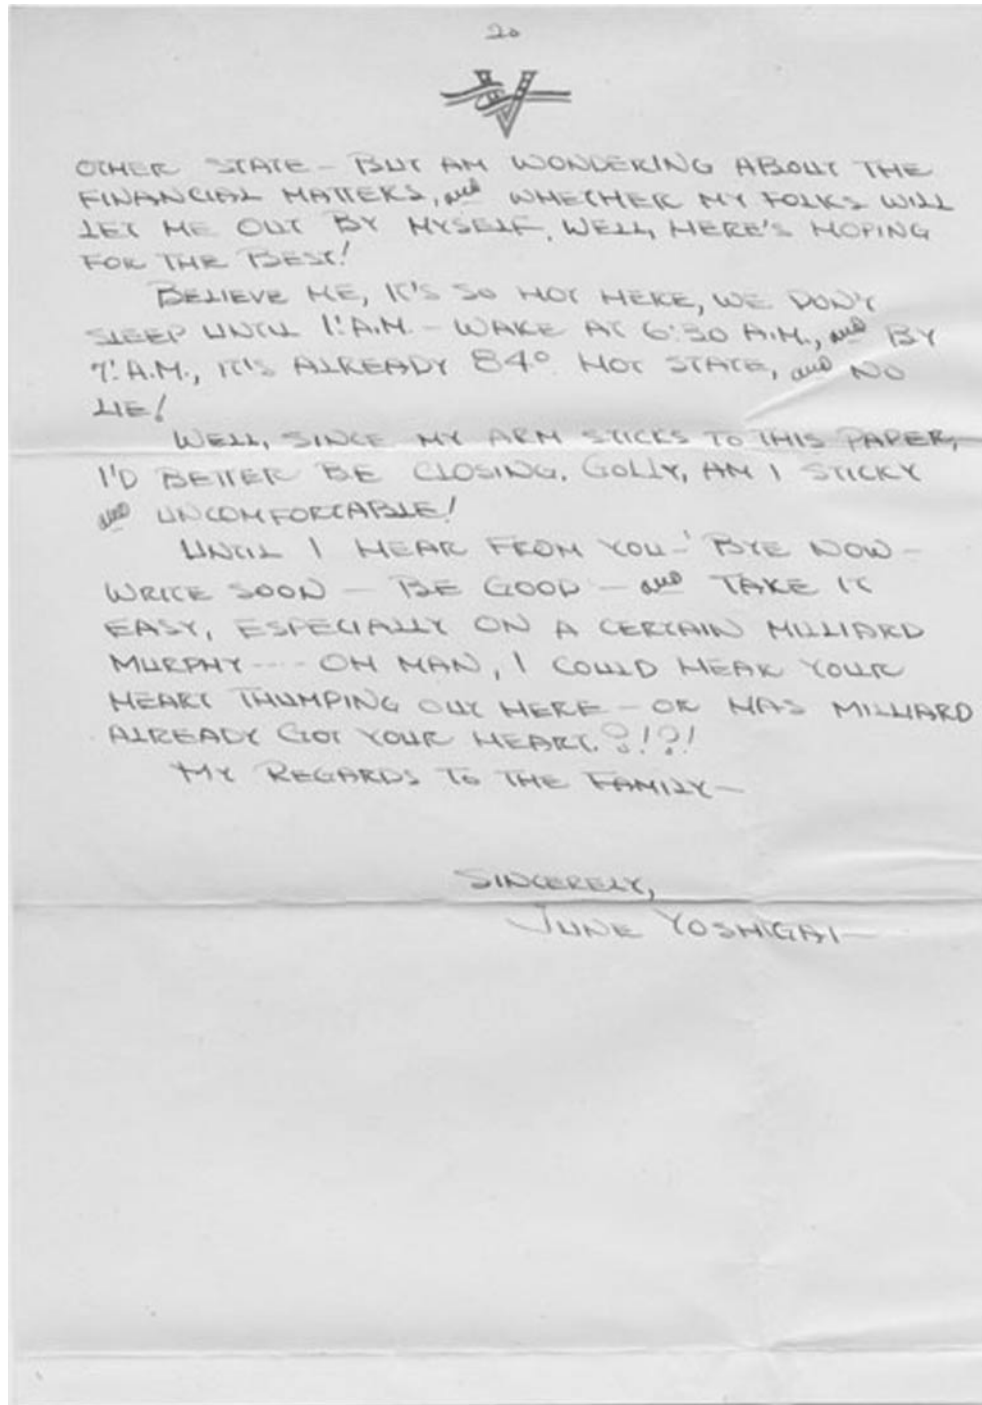 20
OTHER STATE - BUT AM WONDERING ABOUT THE
FINANCIAL MATTERS, and WHETHER MY FOLKS WILL
LET ME OUT BY MYSELF. WELL, HERE'S HOPING
FOR THE BEST!
BELIEVE ME, IT'S SO HOT HERE, WE DON'T
SLEEP UNTIL 1: A.M. - WAKE AT 6:30 A.M., and BY
7: A.M., IT'S ALREADY 84°. HOT STATE, and NO
LIE!
WELL, SINCE MY ARM STICKS TO THIS PAPER,
I'D BETTER BE CLOSING. GOLLY, AM I STICKY
and UNCOMFORTABLE!
UNTIL I HEAR FROM YOU - 'BYE NOW -
WRITE SOON - BE GOOD - and TAKE IT
EASY, ESPECIALLY ON A CERTAIN MILLIARD
MURPHY ---- OH MAN, I COULD HEAR YOUR
HEART THUMPING OUT HERE - OR HAS MILLIARD
ALREADY GOT YOUR HEART. ?!?!
MY REGARDS TO THE FAMILY -
SINCERELY,
JUNE YOSHIGAI -